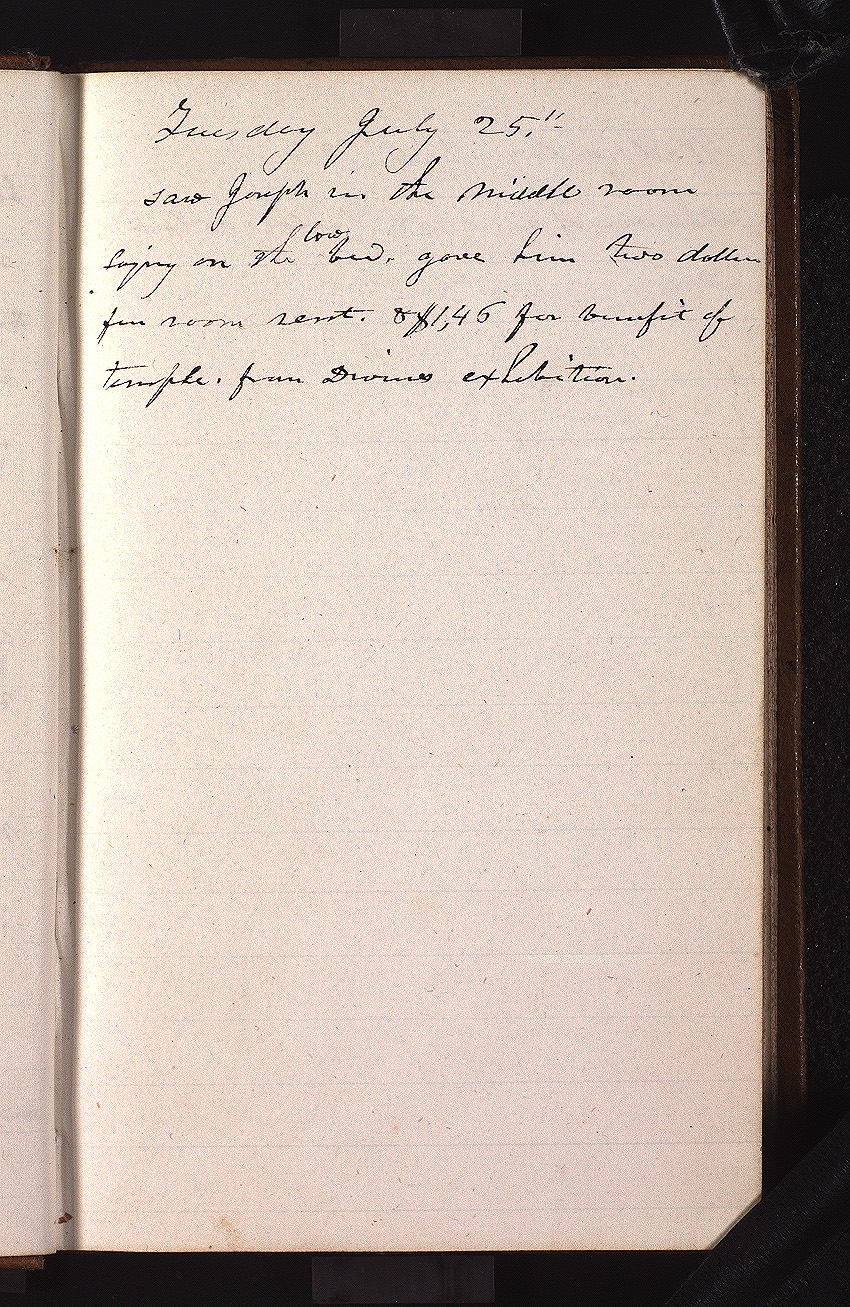 Tuesday July 25."
saw Joseph in the middle room
laying on the low bed. gave him two dollars
for room rent. & $1,46 for benefit of
temple. from Divines exhibition.